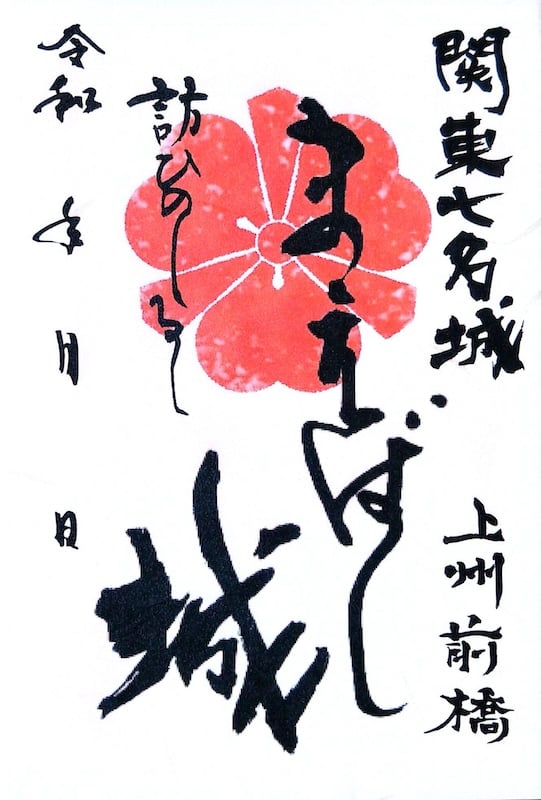 関東七名城
上州前橋
まえばし
城
訪ひのしるし
令和 年 月 日